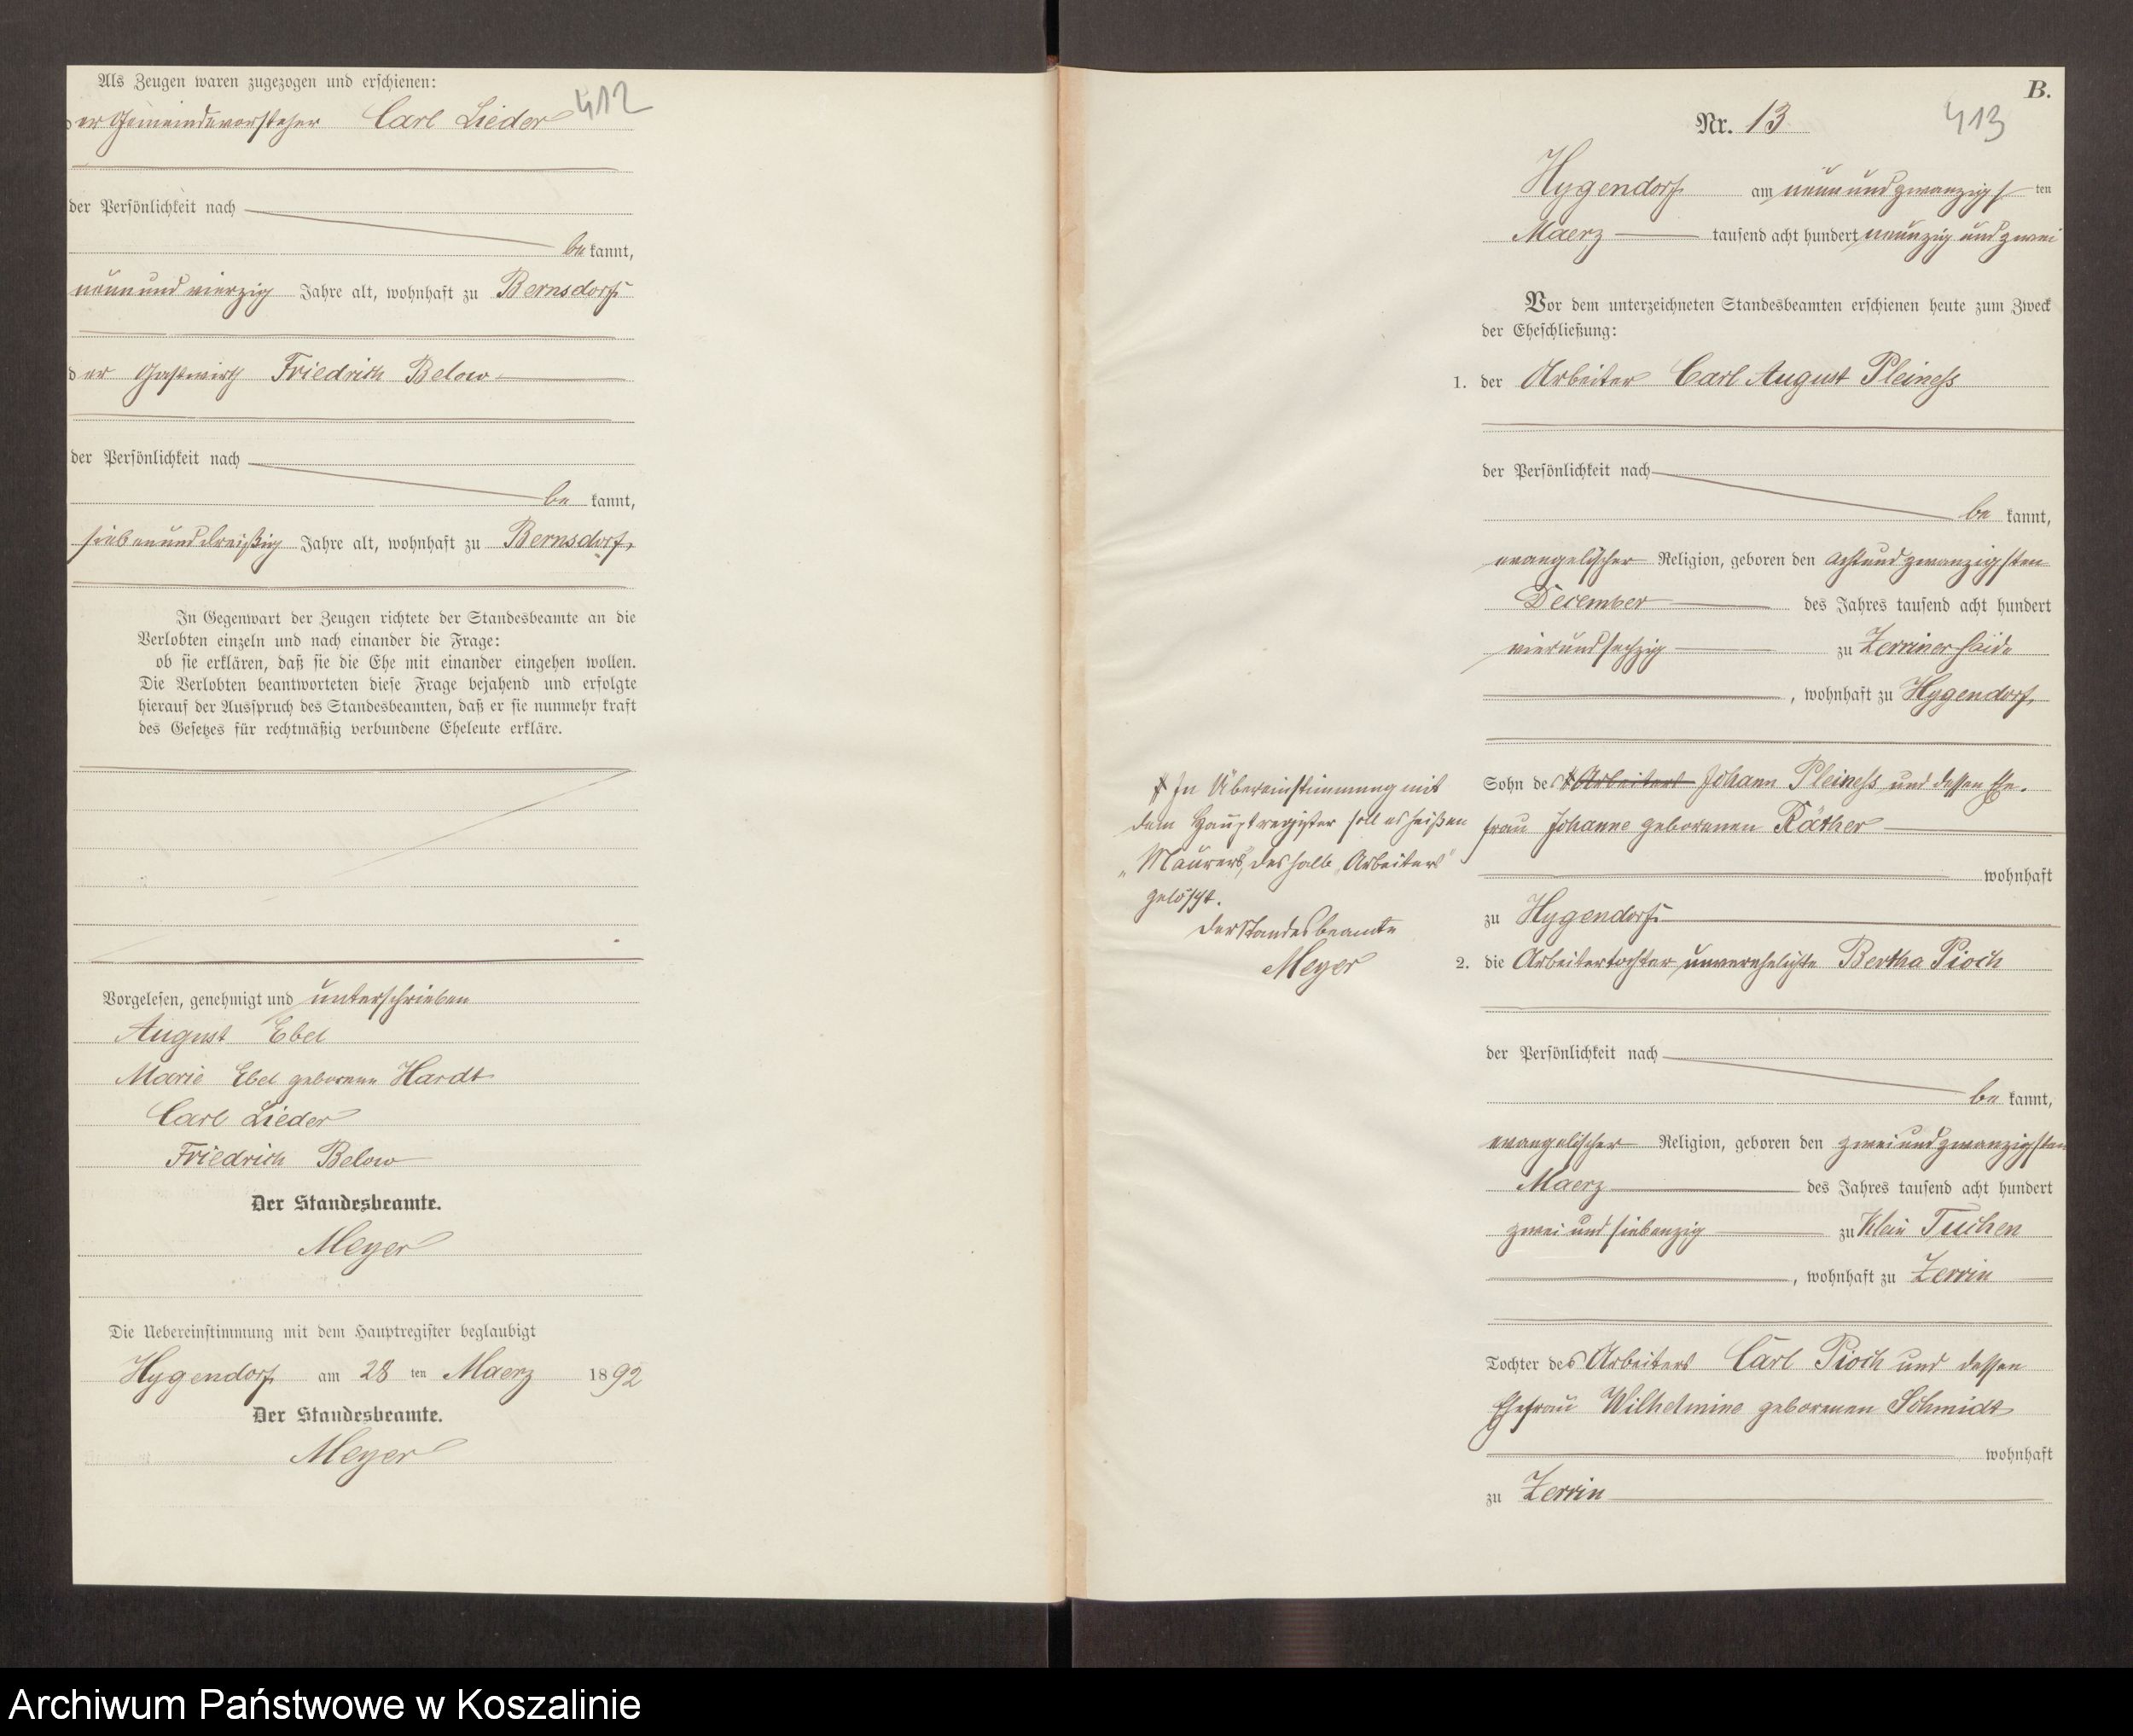 Als Zeugen waren zugezogen und erschienen:
412
der Gemeindevorsteher Carl Lieder
der Persönlichkeit nach
be kannt,
neun und vierzig Jahre alt, wohnhaft zu Bernsdorf
der Gastwirth Friedrich Below
der Persönlichkeit nach
be kannt,
sieben und dreißig Jahre alt, wohnhaft zu Bernsdorf,
In Gegenwart der Zeugen richtete der Standesbeamte an die
Verlobten einzeln und nach einander die Frage:
ob sie erklären, daß sie die Ehe mit einander eingehen wollen.
Die Verlobten beantworteten diese Frage bejahend und erfolgte
hierauf der Ausspruch des Standesbeamten, daß er sie nunmehr kraft
des Gesetzes für rechtmäßig verbundene Eheleute erkläre.
Vorgelesen, genehmigt und unterschrieben
August Ebel
Marie Ebel geborene Hardt
Carl Lieder
Friedrich Below
Der Standesbeamte.
Meyer
Die Uebereinstimmung mit dem Hauptregister beglaubigt
Hygendorf am 28 ten Maerz 1892
Der Standesbeamte.
Meyer
B.
Nr. 13
413
Hygendorf am neun und zwanzigs ten
Maerz tausend acht hundert neunzig und zwei
Vor dem unterzeichneten Standesbeamten erschienen heute zum Zweck
der Eheschließung:
1. der Arbeiter Carl August Pleiness
der Persönlichkeit nach
be kannt,
evangelischer Religion, geboren den acht und zwanzigsten
December des Jahres tausend acht hundert
vier und sechzig zu Zerriner haide
, wohnhaft zu Hygendorf,
Sohn des Arbeiters Johann Pleiness und dessen Ehe-
frau Johanne geborenen Räther
wohnhaft
zu Hygendorf
In Übereinstimmung mit
dem Hauptregister soll es heißen
„Maurers", deshalb „Arbeiters"
gelöscht.
Der Standesbeamte
Meyer
2. die Arbeitertochter, unverehelichte Bertha Pioch
der Persönlichkeit nach
be kannt,
evangelischer Religion, geboren den zwei und zwanzigsten
Maerz des Jahres tausend acht hundert
zwei und siebenzig zu Klein Tuchen
, wohnhaft zu Zerrin
Tochter des Arbeiters Carl Pioch und dessen
Ehefrau Wilhelmine geborenen Schmidt
wohnhaft
zu Zerrin
Archiwum Państwowe w Koszalinie